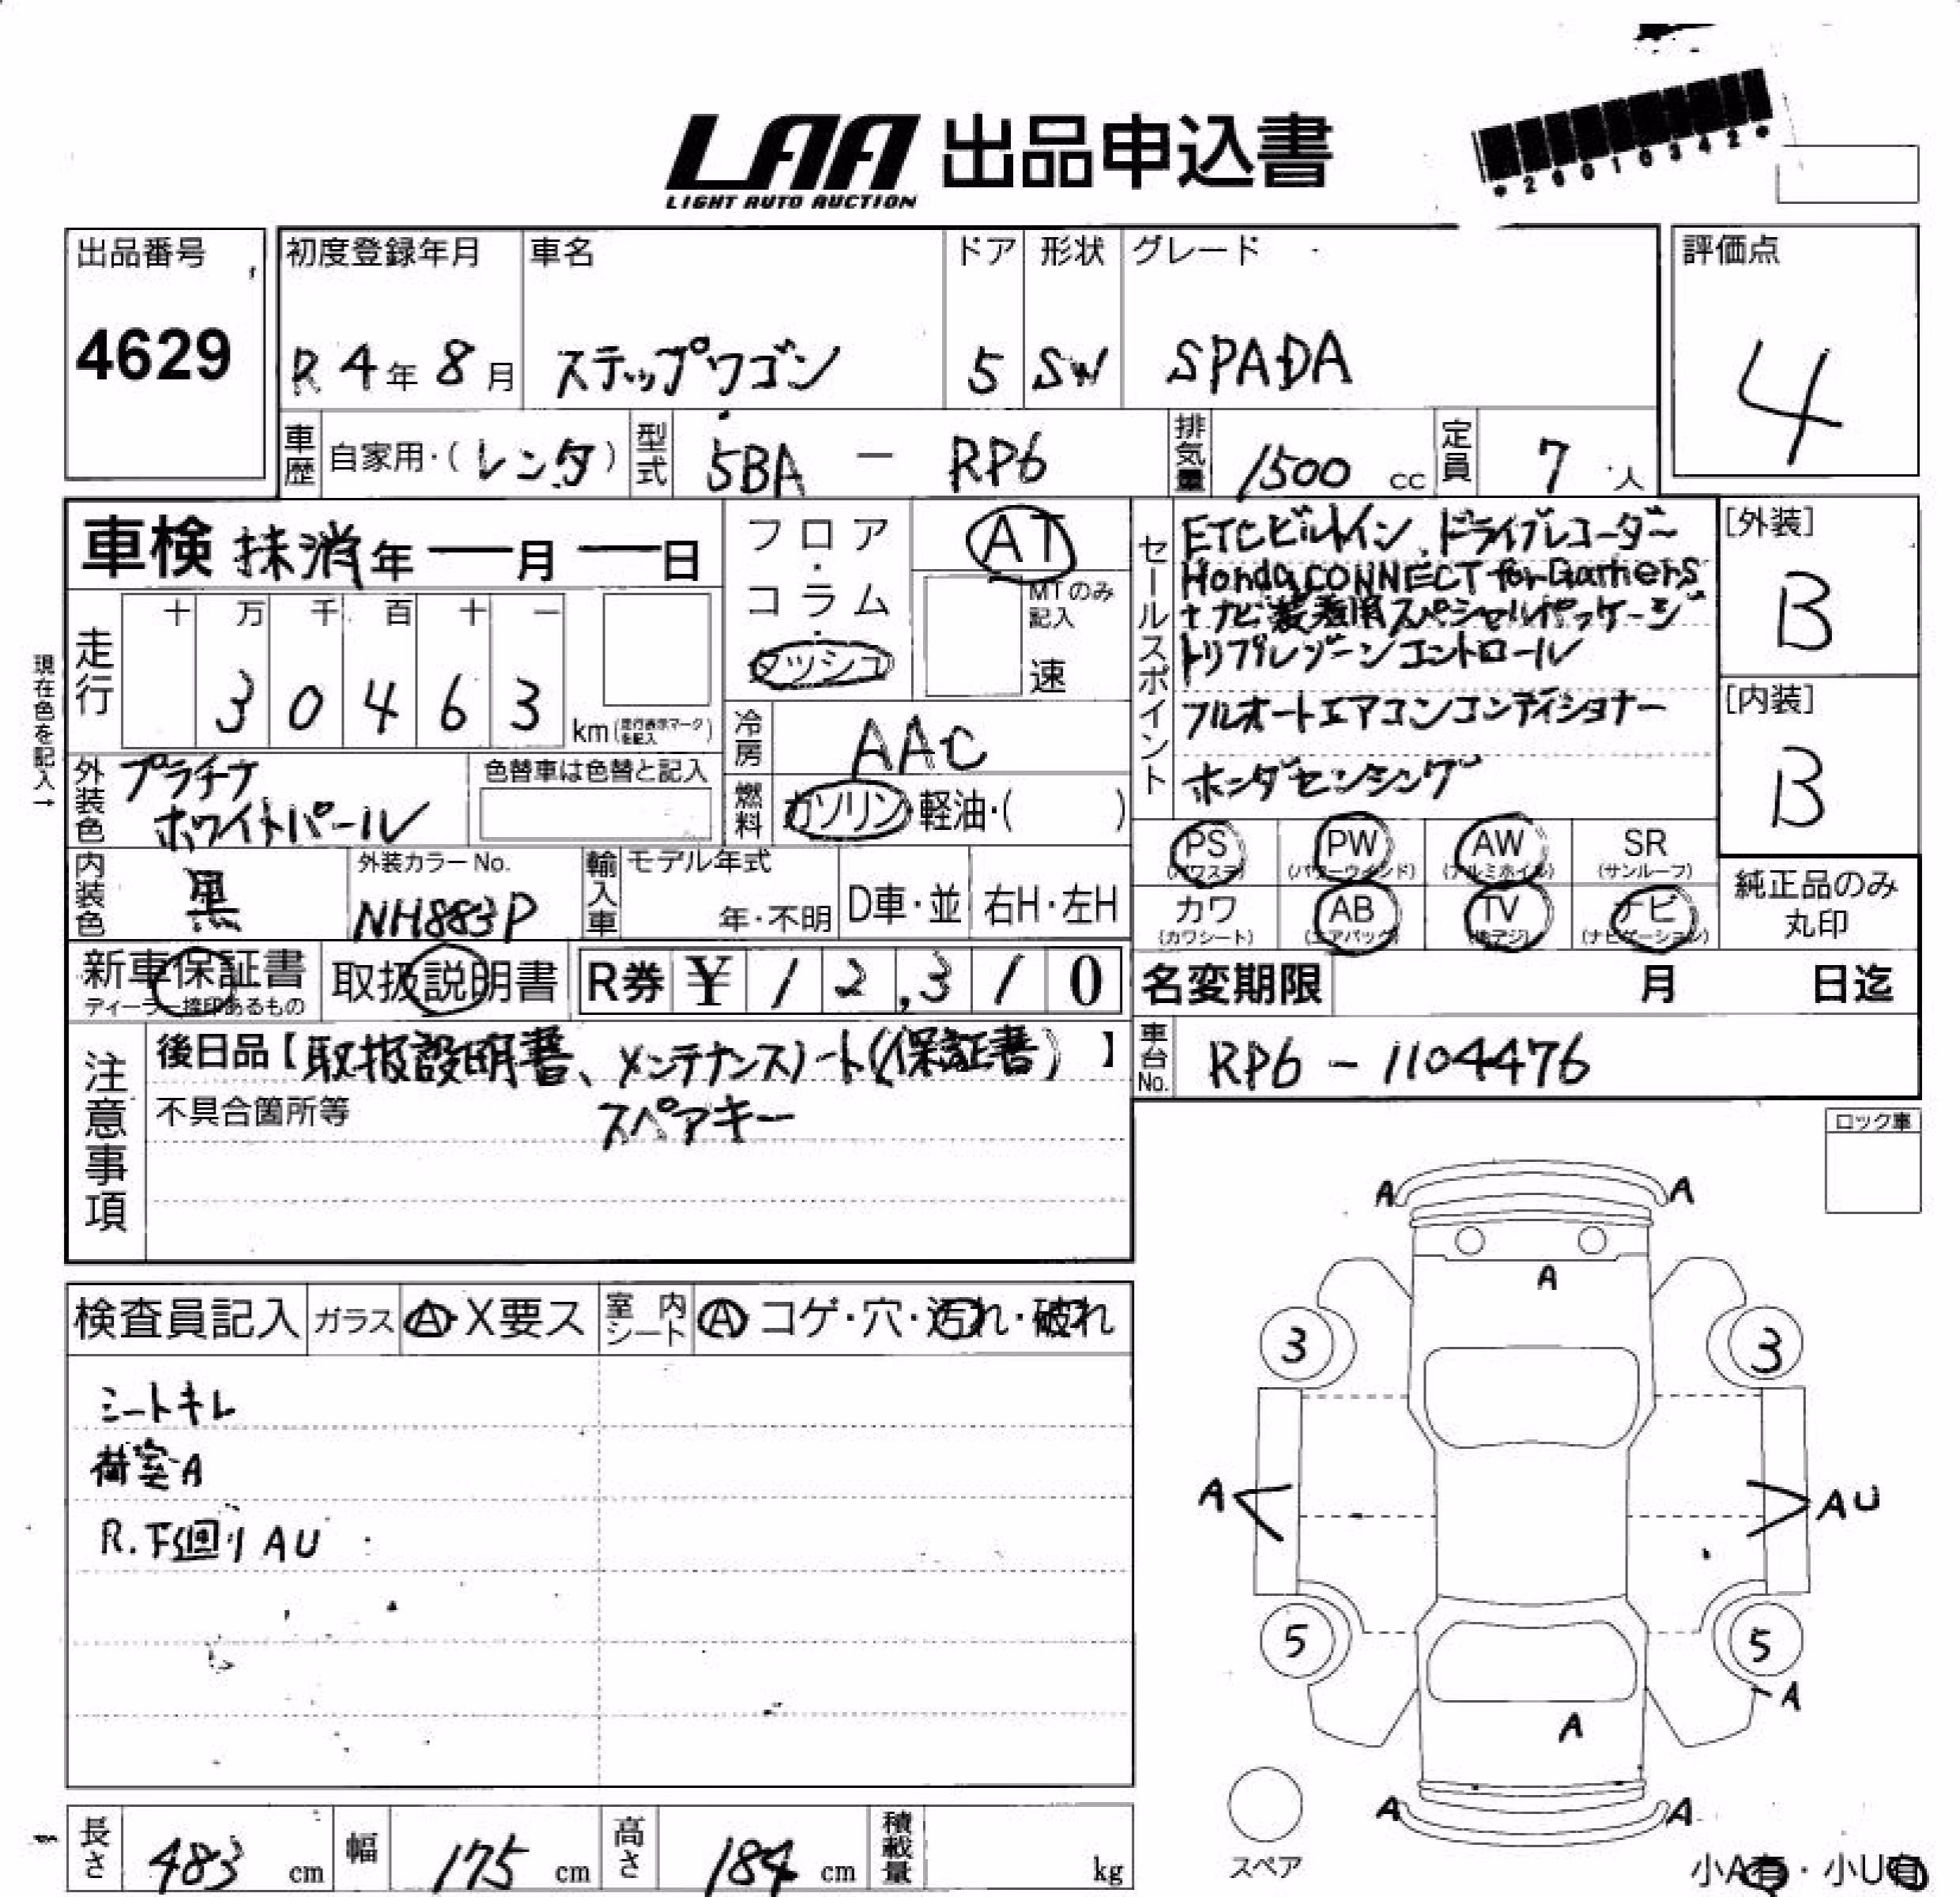 LAA 出品申込書
LIGHT AUTO AUCTION
*2601034 2*
出品番号 初度登録年月 車名 ドア 形状 グレード 評価点
4629 R 4年 8月 ステップワゴン 5 SW SPADA 4
車歴 自家用・(レンタ) 型式 5BA － RP6 排気量 1500 cc 定員 7 人
車検 抹消年 ― 月 ― 日
フロア・コラム・ダッシュ
AT
MTのみ記入
速
セールスポイント
ETCビルトイン、ドライブレコーダー
Honda CONNECT for Gathers
+ナビ装着用スペシャルパッケージ
トリプルゾーンコントロール
フルオートエアコンコンディショナー
ホンダセンシング
[外装]
B
[内装]
B
現在色を記入→
走行 十 万 千 百 十 一
3 0 4 6 3 km(走行表示マークを記入)
冷房 AAC
燃料 ガソリン・軽油・( )
外装色 プラチナ
ホワイトパール
色替車は色替と記入
内装色 黒
外装カラーNo.
NH883P
輸入車 モデル年式
年・不明 D車・並 右H・左H
PS (パワステ) PW (パワーウインド) AW (アルミホイル) SR (サンルーフ)
カワ (カワシート) AB (エアバック) TV (地デジ) ナビ (ナビゲーション)
純正品のみ
丸印
新車保証書
ディーラー捺印あるもの
取扱説明書 R券 ¥ 1 2,3 1 0
名変期限 月 日迄
車台No. RP6 - 1104476
注意事項
後日品【取扱説明書、メンテナンスノート(保証書)】
不具合箇所等 スペアキー
ロック車
検査員記入 ガラス A・X要ス 室内シート A コゲ・穴・汚れ・破れ
シートキレ
荷室A
R.下廻り AU
A A
A
3 3
A AU
5 5
A
A
A A
スペア
小A有・小U有
長さ 483 cm 幅 175 cm 高さ 184 cm 積載量 kg